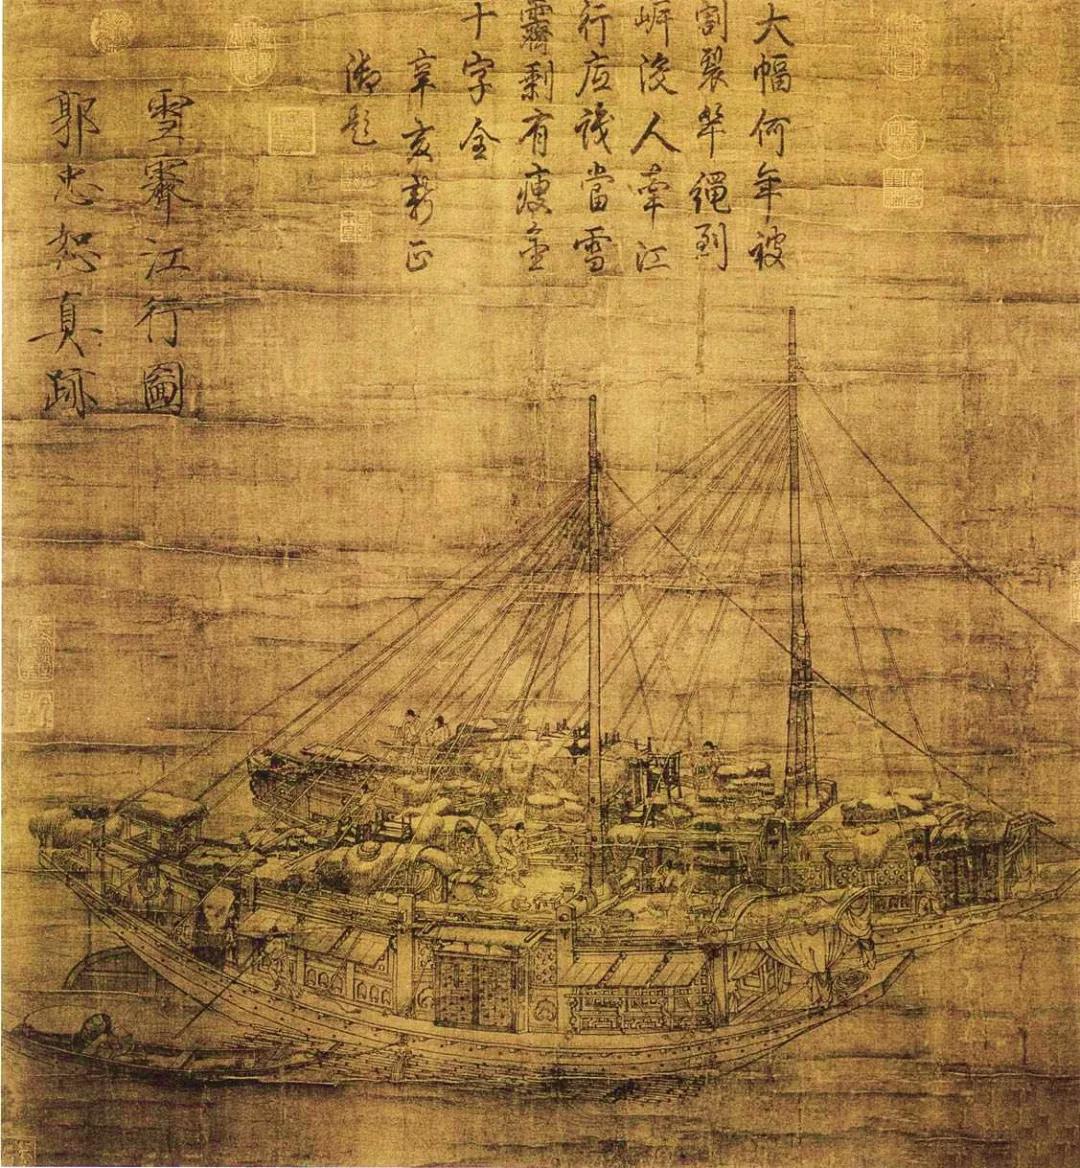 大幅何年被
割裂繩到
岸没人牽江
行底識當雪
霽剩有瘦金
十字全
辛亥新正
御題
雪霽江行圖
郭忠恕真跡